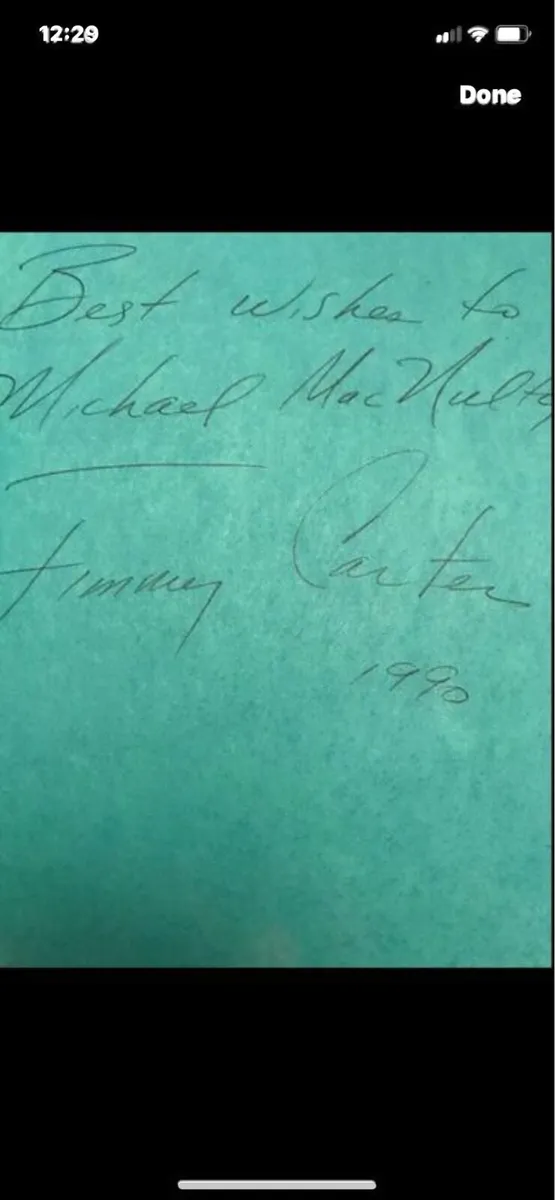 12:29
Done
Best wishes to
Michael MacNulty
Jimmy Carter
1990